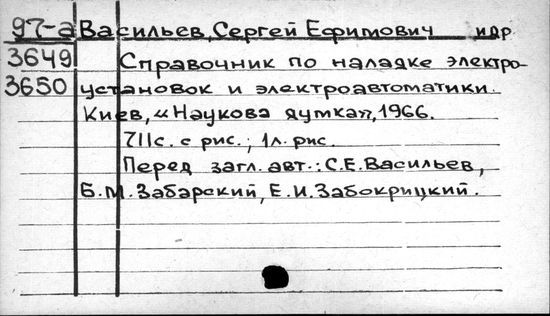 97-а Васильев, Сергей Ефимович идр
3649 Справочник по наладке электро-
3650 установок и электроавтоматики.
Киев, «Наукова думка», 1966.
711с. с рис.; 1л. рис.
Перед загл. авт.: С.Е. Васильев,
Б.М. Забарский, Е.И. Забокрицкий.